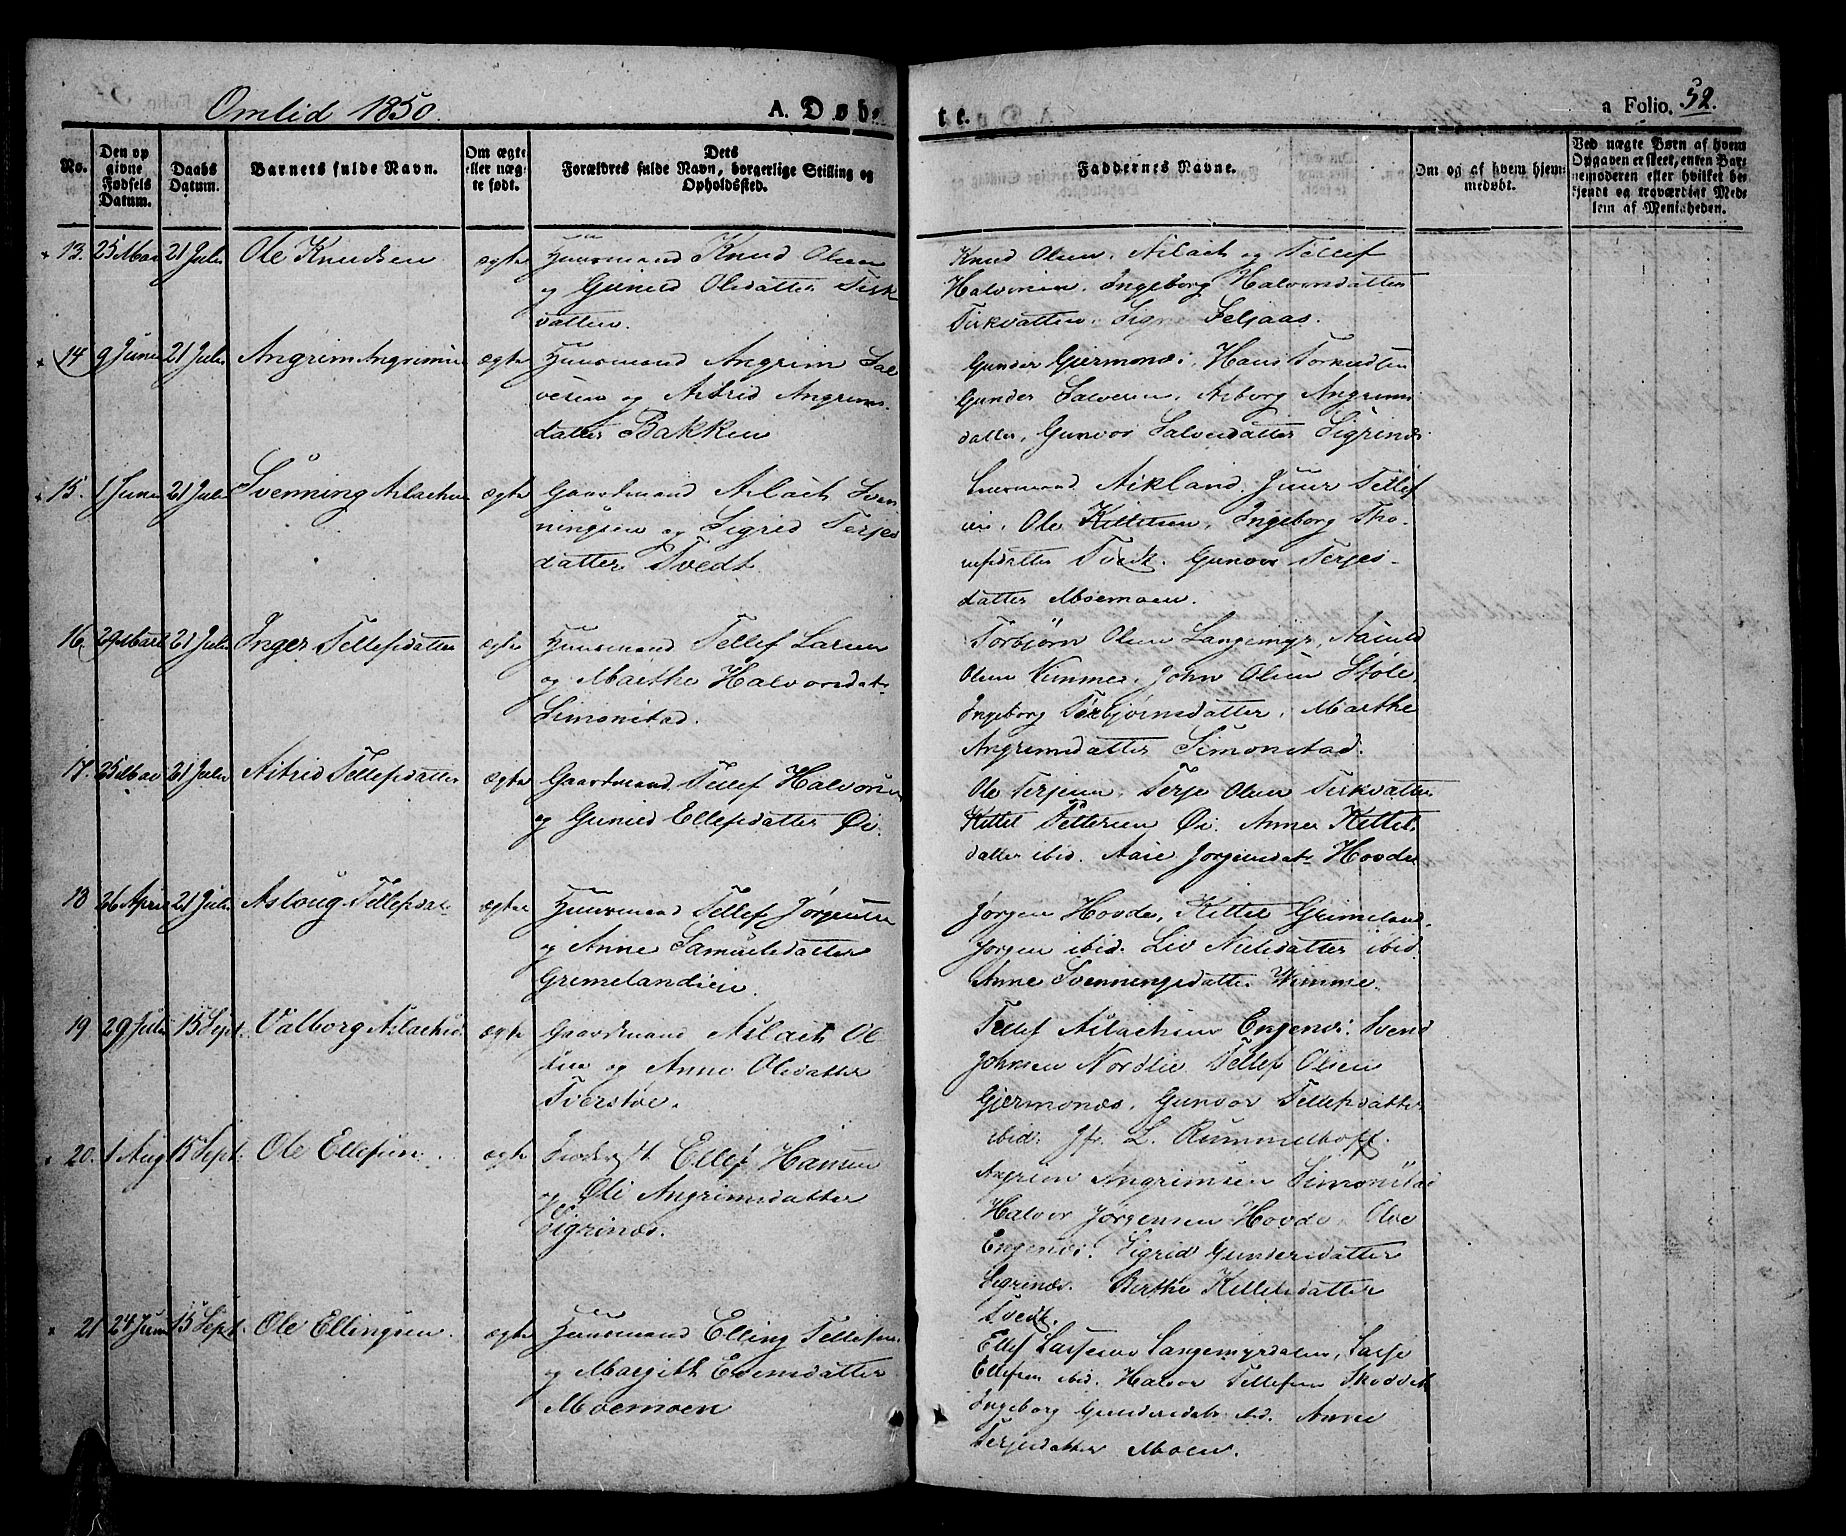 Omlid 1850.
A. Døb
te.
a Folio. 52.
No.
Den op
givne
Fødsels
Datum.
Daabs
Datum.
Barnets fulde Navn.
Om ægte
eller uæg-
te født.
Dets
Forældres fulde Navn, borgerlige Stilling og
Opholdssted.
Faddernes Navne.
Om og af hvem hjem-
medøbt.
Ved uægte Børn af hvem
Opgaven er skeet, enten Bar-
nemoderen eller hvilket be-
kjendt og troværdigt Med-
lem af Menigheden.
13. 25 Mai 21 Juli Ole Knudsen ægte Huusmand Knud Olsen
og Gunild Olsdatter Tisk-
vatten.
Knud Olsen, Aslach og Tellef
Halvorsen. Ingeborg Halvorsdatter
Tiskvatten. Signe Seljaas.
14 9 Juni 21 Juli Angrim Angrimsen ægte Huusmand Angrim Sal
vesen og Astrid Angrims-
datter Bakken
Gunder Gjermonæs, Hans
Gunder Salvesen. Asborg Angrims
datter, Gunvor Salvesdatter Sigrinæs
15. 1 Juni 21 Juli Svenning Aslachsen ægte Gaardmand Aslach Sven
ningsen og Sigrid Terjes
datter Tvedt.
Aikland. Juur Tellef
sen. Ole Kittelsen. Ingeborg
datter Tvedt. Gunvor Terjes-
datter Moemoen.
16. 29 Marts 21 Juli Inger Tellefsdatter ægte Huusmand Tellef Larsen
og Marthe Halvorsdatr
Simonstad.
Torbjørn Olsen Langemyr,
Olsen Vimme. John Olsen Støle.
Ingeborg Torbjørnsdatter. Marthe
Angrimsdatter Simonstad.
17. 25 Mai 21 Juli Astrid Tellefsdatter ægte Gaardmand Tellef Halvorsen
og Gunild Ellefsdatter Øi.
Ole Terjesen. Terje Olsen Tiskvatten
Kittel Pettersen Øi. Anne Kittels
datter ibid. Aase Jørgensdatr Hovde
18 26 April 21 Juli Aslaug Tellefsdatr ægte Huusmand Tellef Jørgensen
og Anne Samuelsdatter
Grimelandsien.
Jørgen Hovde, Kittel Grimeland.
Jørgen ibid. Liv Nilsdatter ibid.
Anne Svenningsdatter Vimme.
19. 29 Juli 15 Sept. Valborg Aslachsd ægte Gaardmand Aslach Ol
sen og Anne Olsdatter
Tverstøe.
Tellef Aslachsen Engenæs. Svend
Johnsen Nordlie Tellef Olsen
Gjermonæs. Gunvor Tellefsdatter
ibid. Jfr. L. Rummelhoff.
20. 1 Aug 15 Sept. Ole Ellefsen ægte Ellef Hansen
og Øli Angrimsdatter
Sigrinæs.
Angrim Angrimsen Simonstad
Halvor Jørgensen Hovde. Olve
Engenæs. Sigrid Gundersdatter
Sigrinæs. Berthe Kittelsdatter
Tvedt.
21 24 Juni 15 Sept. Ole Ellingsen. ægte Huusmand Elling Tellefsen
og Margith Evensdatter
Moemoen
Ellef Larsen Langemyrdalen,
Ellefsen ibid. Halvor Tellefsen
Ingeborg Gundersdatr ibid. Anne
Terjesdatter Moen.